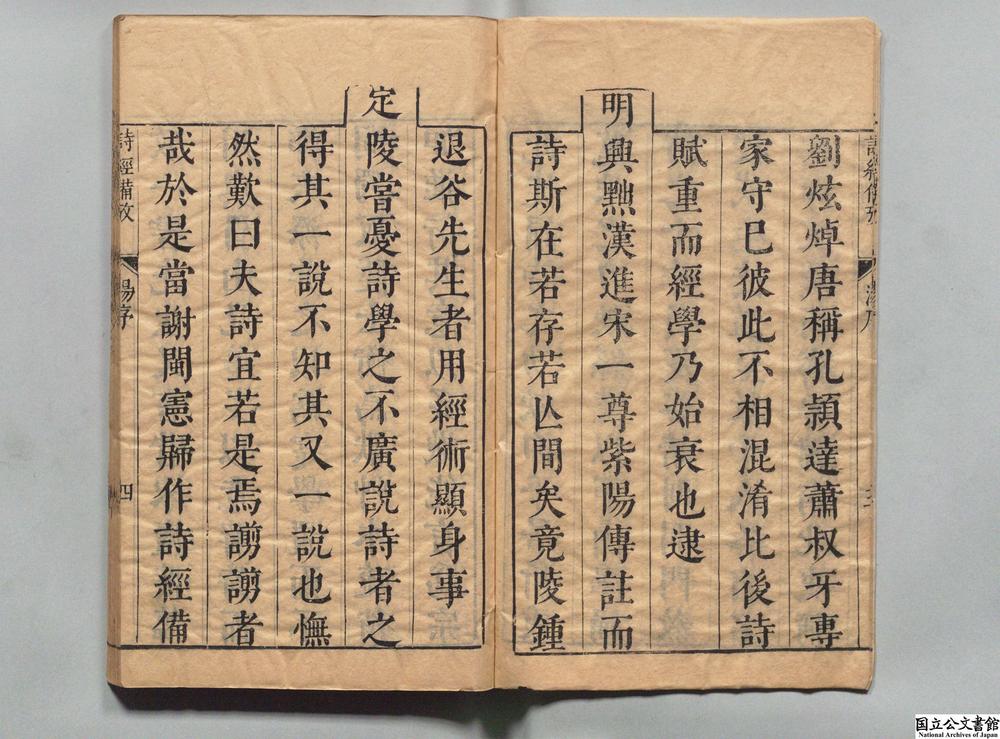 劉炫焯唐稱孔頴達蕭叔牙專
家守已彼此不相混淆比後詩
賦重而經學乃始衰也逮
明興黜漢進宋一尊紫陽傳註而
詩斯在若存若亾間矣竟陵鍾
退谷先生者用經術顯身事
定陵嘗憂詩學之不廣說詩者之
得其一說不知其又一說也憮
然歎曰夫詩宜若是焉謭謭者
哉於是當謝閩憲歸作詩經備
詩經備攷
湯序
四
国立公文書館
National Archives of Japan